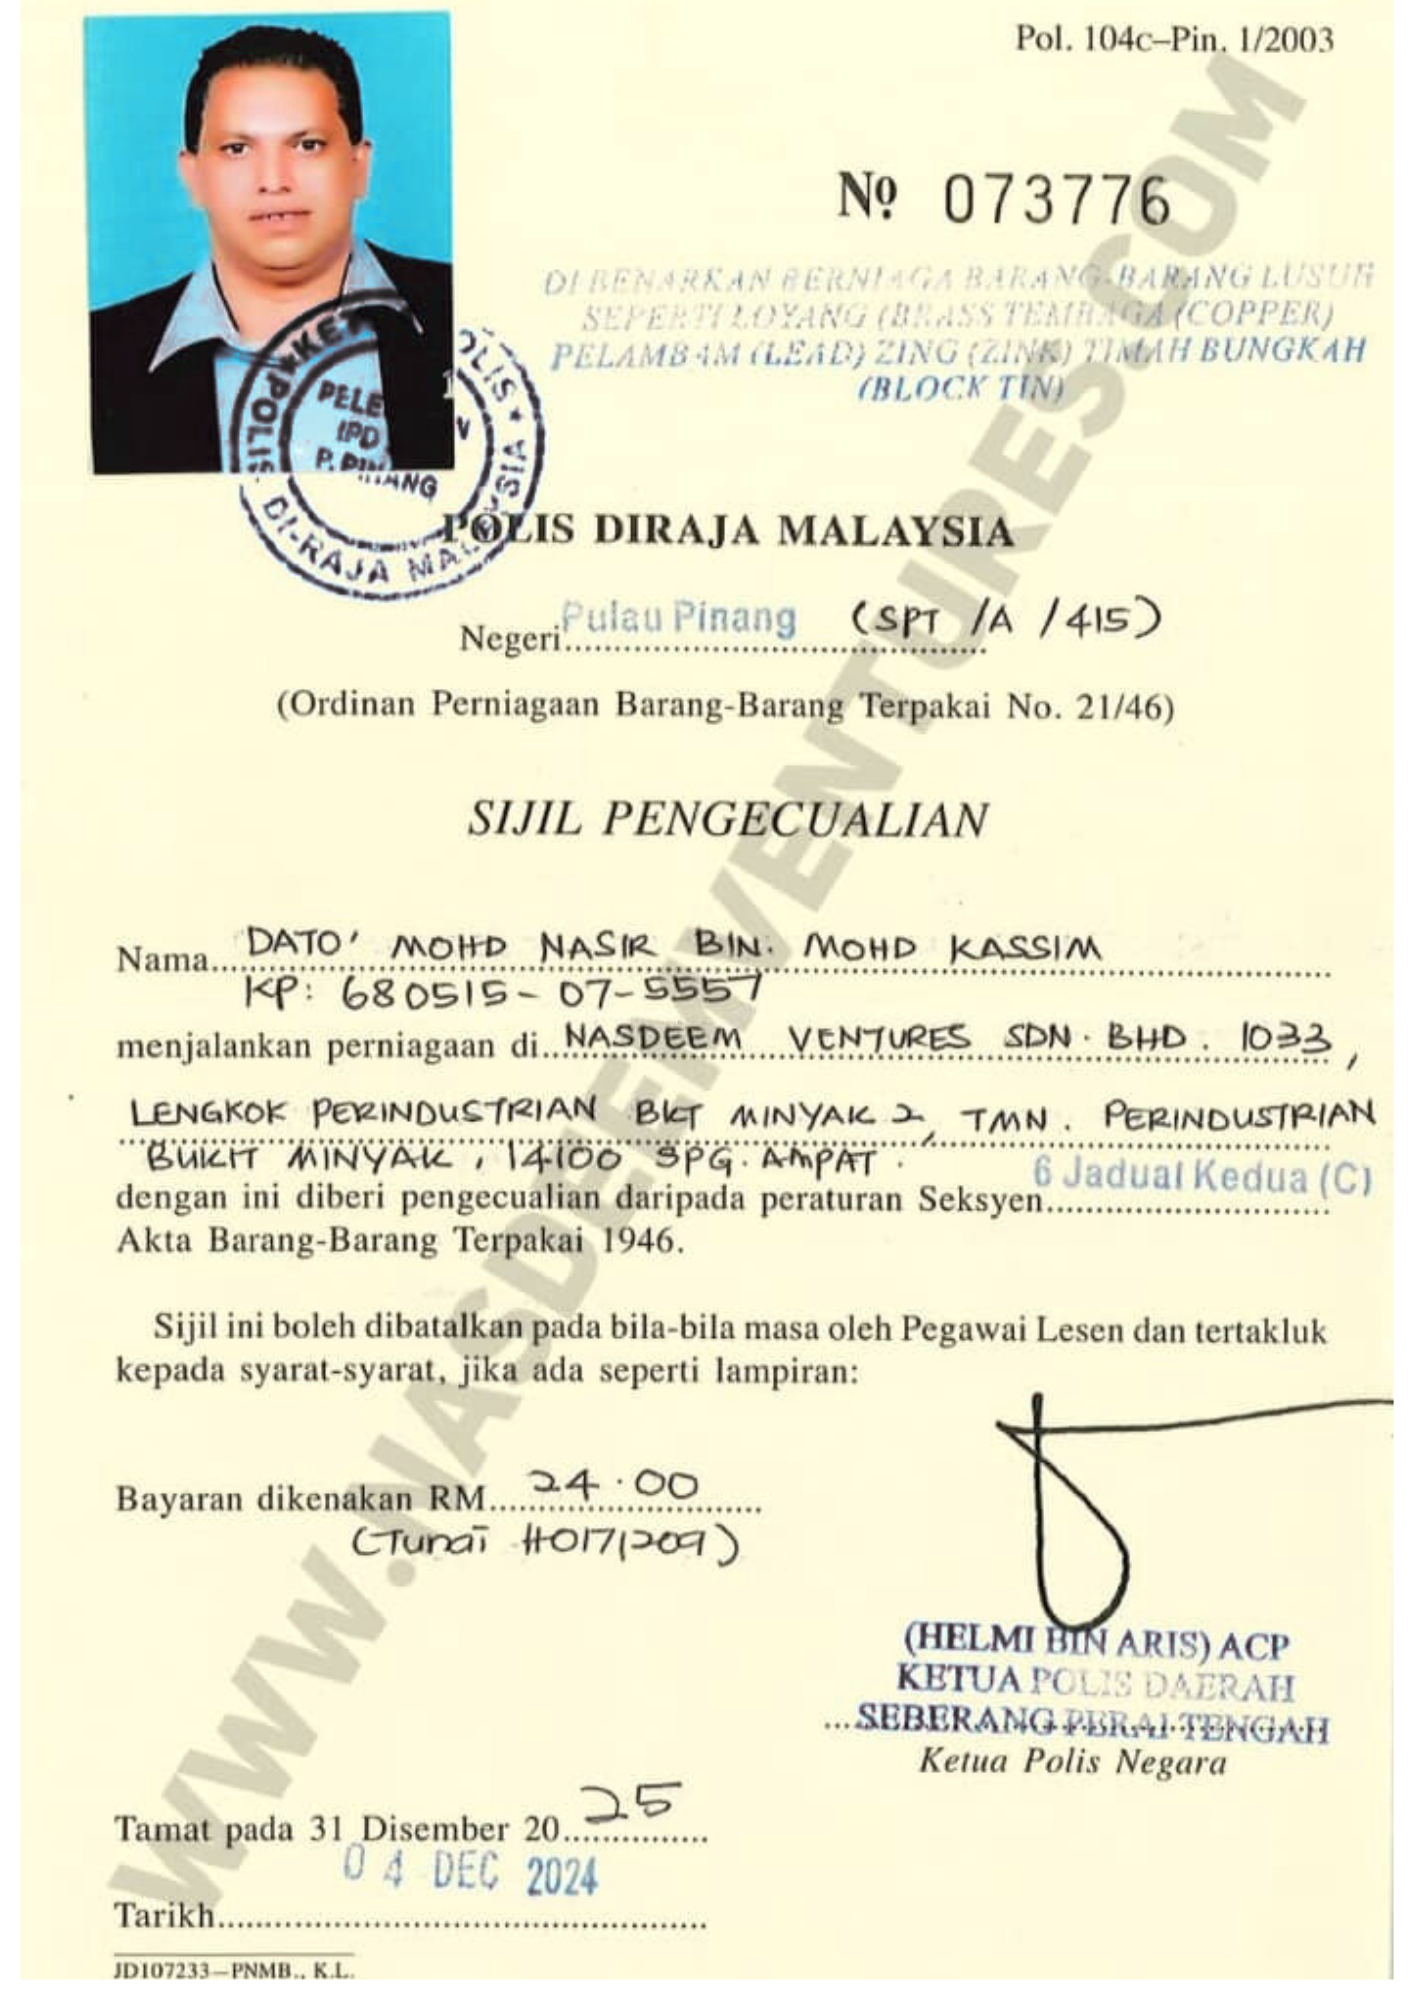 Pol. 104c–Pin. 1/2003
Nº 073776
DI BENARKAN BERNIAGA BARANG-BARANG LUSUH
SEPERTI LOYANG (BRASS TEMBAGA (COPPER)
PELAMBAM (LEAD) ZING (ZINK) TIMAH BUNGKAH
(BLOCK TIN)
POLIS DI-RAJA MALAYSIA
IPD
P. PINANG
POLIS DIRAJA MALAYSIA
Negeri Pulau Pinang (SPT /A /415)
(Ordinan Perniagaan Barang-Barang Terpakai No. 21/46)
SIJIL PENGECUALIAN
Nama DATO' MOHD NASIR BIN. MOHD KASSIM
KP: 680515-07-5557
menjalankan perniagaan di NASDEEM VENTURES SDN. BHD. 1033,
LENGKOK PERINDUSTRIAN BKT MINYAK 2, TMN. PERINDUSTRIAN
BUKIT MINYAK, 14100 SPG. AMPAT.
dengan ini diberi pengecualian daripada peraturan Seksyen 6 Jadual Kedua (C)
Akta Barang-Barang Terpakai 1946.
Sijil ini boleh dibatalkan pada bila-bila masa oleh Pegawai Lesen dan tertakluk
kepada syarat-syarat, jika ada seperti lampiran:
Bayaran dikenakan RM 24.00
(Tunai #0171209)
(HELMI BIN ARIS) ACP
KETUA POLIS DAERAH
SEBERANG PERAI TENGAH
Ketua Polis Negara
Tamat pada 31 Disember 2025
04 DEC 2024
Tarikh
JD107233—PNMB., K.L.
WWW.NASDEEMVENTURES.COM